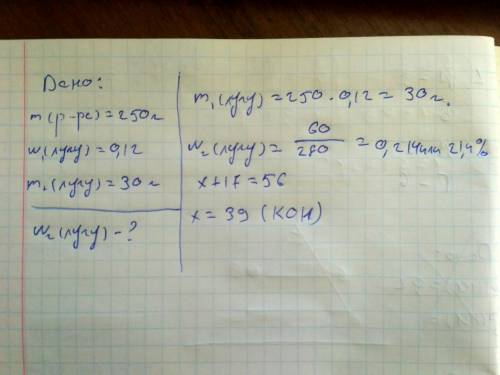 Дано:
m(р-ра)=250г
w₁(лугу)=0,12
m₁(лугу)=30г
w₂(лугу)-?
m₁(лугу)=250·0,12=30г.
w₂(лугу)=60/280=0,214 или 21,4%
x+17=56
x=39 (KOH)